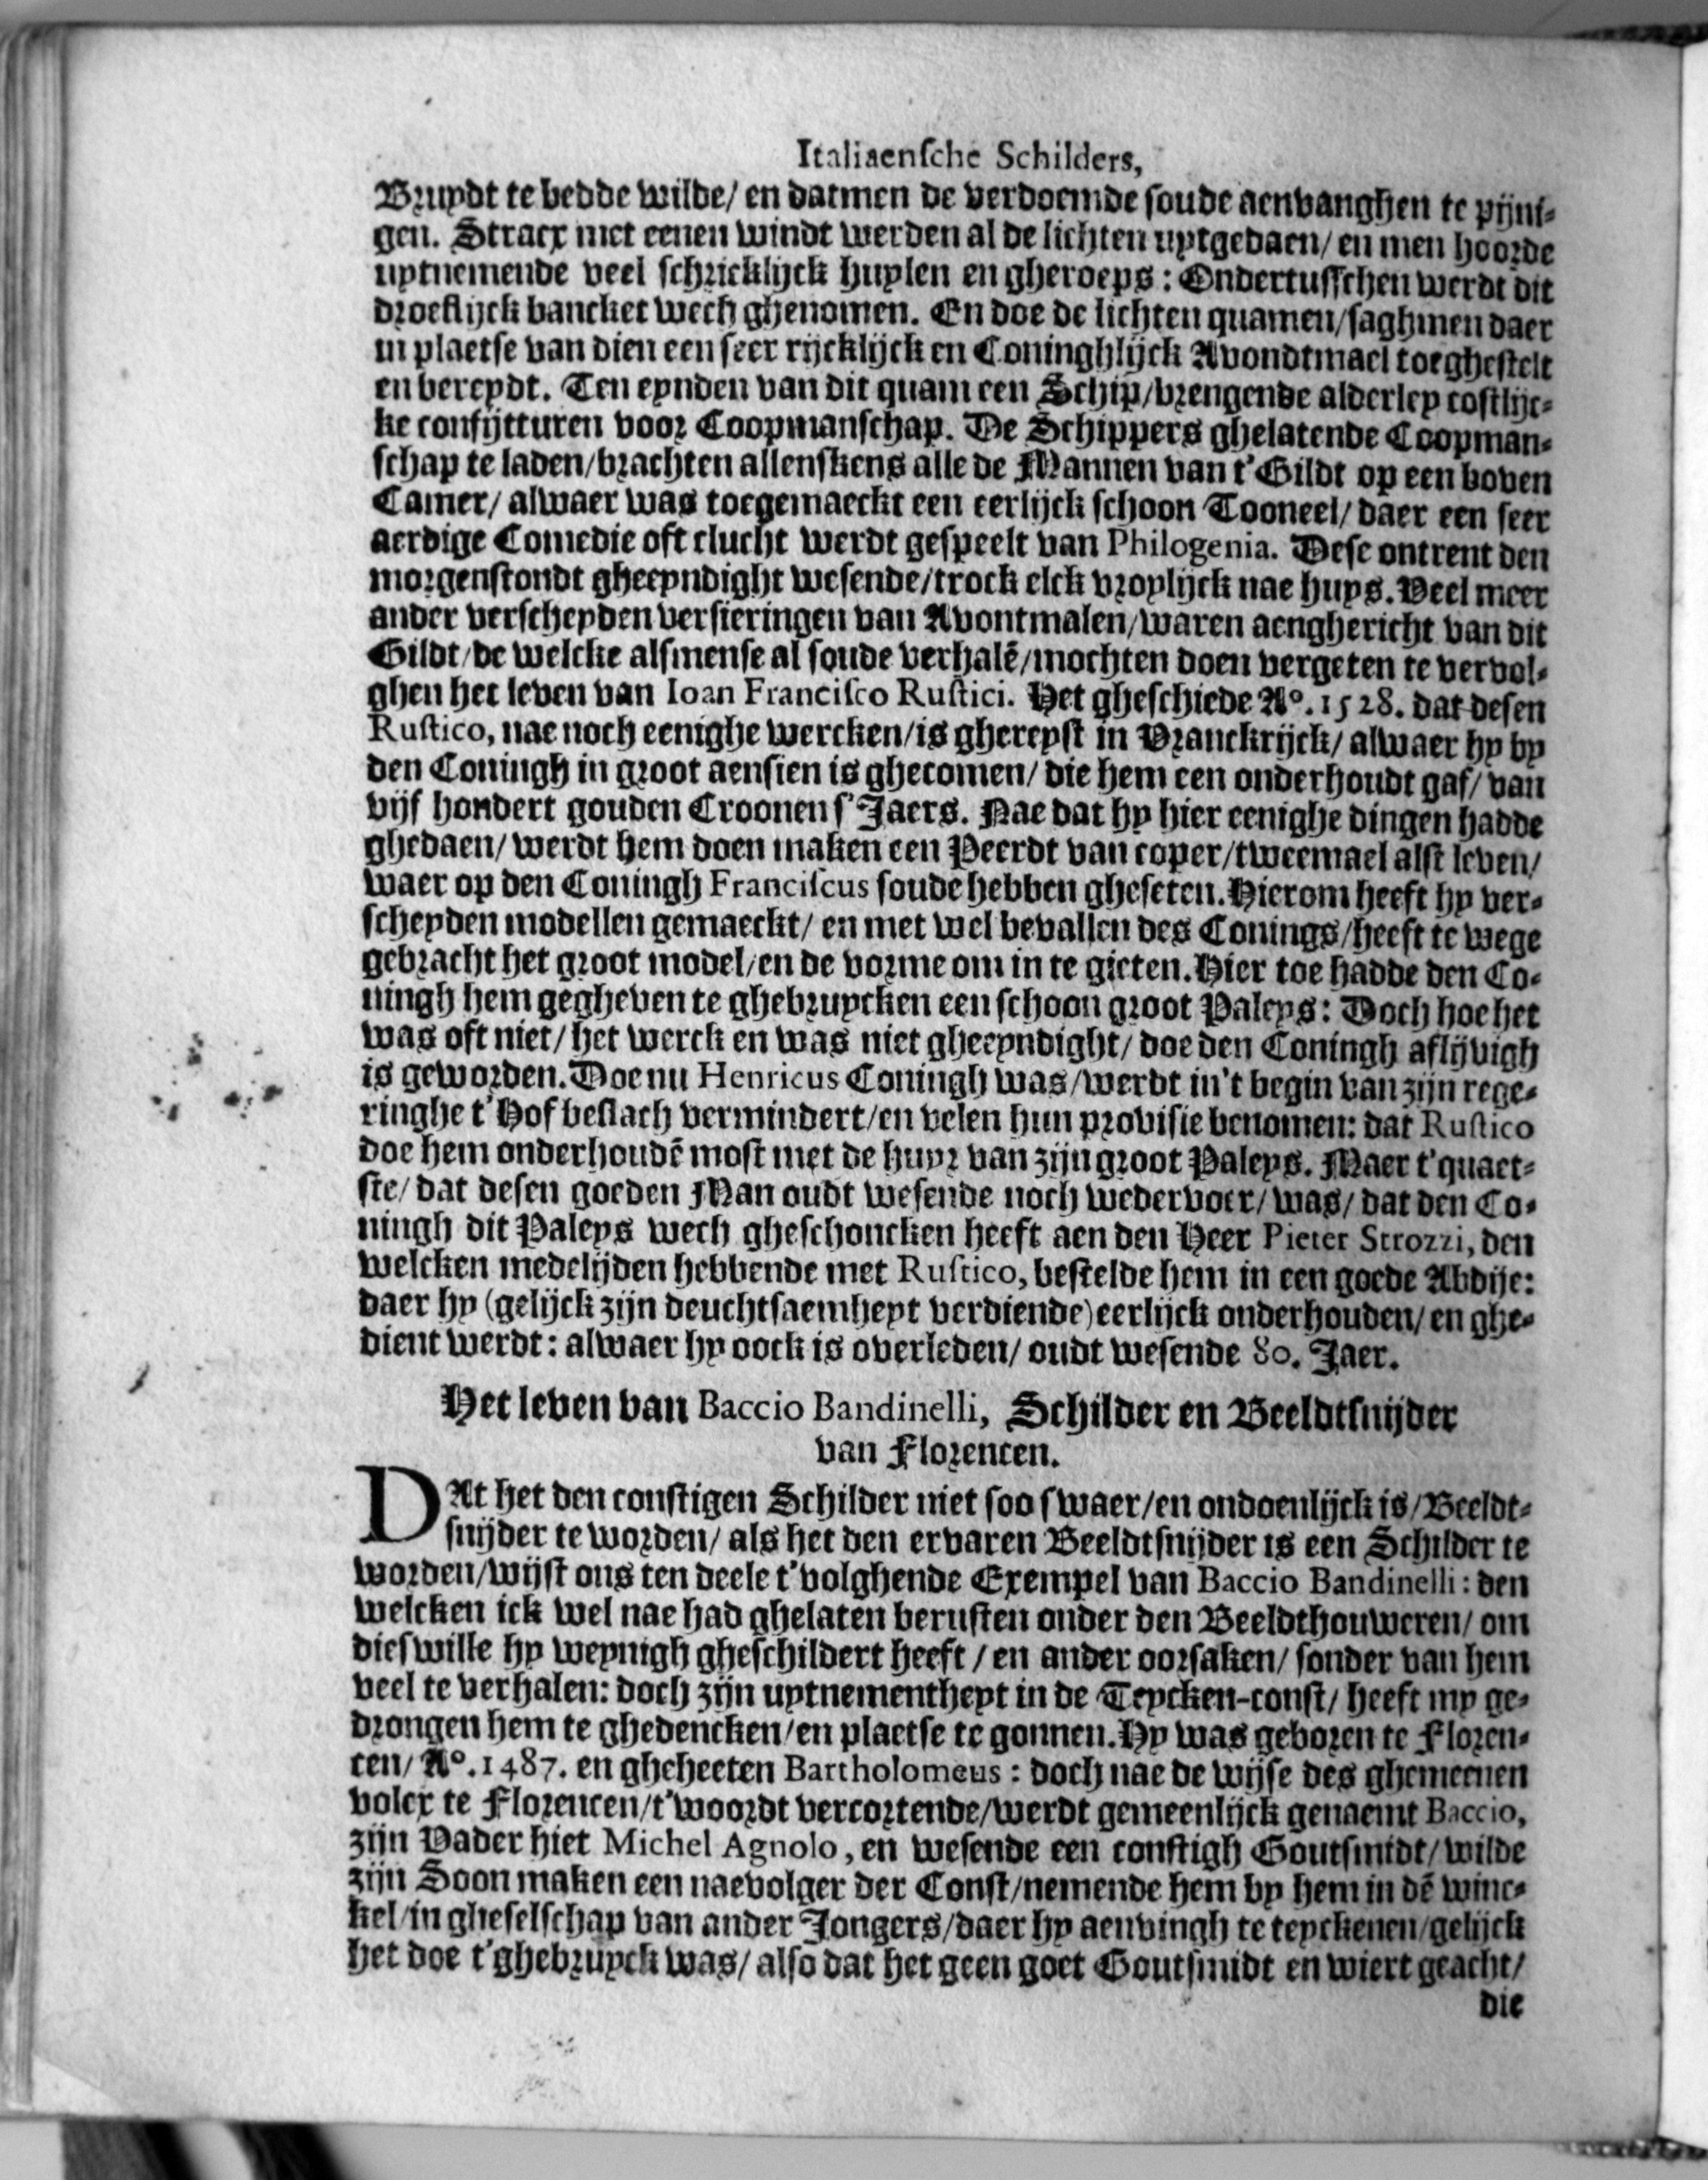 Italiaensche Schilders,
Bruydt te bedde wilde/ en datmen de verdoemde soude aenvanghen te pijni-
gen. Stracx met eenen windt werden al de lichten uytgedaen/ en men hoorde
uytnemende veel schricklijck huylen en gheroeps: Ondertusschen werdt dit
droeflijck bancket wech ghenomen. En doe de lichten quamen/ saghmen daer
in plaetse van dien een seer rijcklijck en Coninghlijck Avondtmael toeghestelt
en bereydt. Ten eynden van dit quam een Schip/ brengende alderley costlijc-
ke confijtturen voor Coopmanschap. De Schippers ghelatende Coopman-
schap te laden/ brachten allenskens alle de Mannen van t'Gildt op een boven
Camer/ alwaer was toegemaeckt een eerlijck schoon Tooneel/ daer een seer
aerdige Comedie oft clucht werdt gespeelt van Philogenia. Dese ontrent den
morgenstondt gheeyndight wesende/ trock elck vroylijck nae huys. Veel meer
ander verscheyden versieringen van Avontmalen/ waren aenghericht van dit
Gildt/ de welcke alsmense al soude verhalē/ mochten doen vergeten te vervol-
ghen het leven van Ioan Francisco Rustici. Het gheschiede A°. 1528. dat desen
Rustico, nae noch eenighe wercken/ is ghereyst in Vranckrijck/ alwaer hy by
den Coningh in groot aensien is ghecomen/ die hem een onderhoudt gaf/ van
vijf hondert gouden Croonen s'Jaers. Nae dat hy hier eenighe dingen hadde
ghedaen/ werdt hem doen maken een Peerdt van coper/ tweemael alst leven/
waer op den Coningh Franciscus soude hebben gheseten. Hierom heeft hy ver-
scheyden modellen gemaeckt/ en met wel bevallen des Conings/ heeft te wege
gebracht het groot model/ en de vorme om in te gieten. Hier toe hadde den Co-
ningh hem gegheven te ghebruycken een schoon groot Paleys: Doch hoe het
was oft niet/ het werck en was niet gheeyndight/ doe den Coningh aflijvigh
is geworden. Doe nu Henricus Coningh was/ werdt in't begin van zijn rege-
ringhe t'Hof beslach vermindert/ en velen hun provisie benomen: dat Rustico
doe hem onderhoudē most met de huyr van zijn groot Paleys. Maer t'quaet-
ste/ dat desen goeden Man oudt wesende noch wedervoer/ was/ dat den Co-
ningh dit Paleys wech gheschoncken heeft aen den Heer Pieter Strozzi, den
welcken medelijden hebbende met Rustico, bestelde hem in een goede Abdije:
daer hy (gelijck zijn deuchtsaemheyt verdiende) eerlijck onderhouden/ en ghe-
dient werdt: alwaer hy oock is overleden/ oudt wesende 80. Jaer.
Het leven van Baccio Bandinelli, Schilder en Beeldtsnijder
van Florencen.
DAt het den constigen Schilder niet soo swaer/ en ondoenlijck is/ Beeldt-
snijder te worden/ als het den ervaren Beeldtsnijder is een Schilder te
worden/ wijst ons ten deele t'volghende Exempel van Baccio Bandinelli: den
welcken ick wel nae had ghelaten berusten onder den Beeldthouweren/ om
dieswille hy weynigh gheschildert heeft/ en ander oorsaken/ sonder van hem
veel te verhalen: doch zijn uytnementheyt in de Teycken-const/ heeft my ge-
drongen hem te ghedencken/ en plaetse te gonnen. Hy was geboren te Floren-
cen/ A°. 1487. en gheheeten Bartholomeus: doch nae de wijse des ghemeenen
volcx te Florencen/ t'woordt vercortende/ werdt gemeenlijck genaemt Baccio,
zijn Vader hiet Michel Agnolo, en wesende een constigh Goutsmidt/ wilde
zijn Soon maken een naevolger der Const/ nemende hem by hem in dē winc-
kel/ in gheselschap van ander Jongers/ daer hy aenvingh te teyckenen/ gelijck
het doe t'ghebruyck was/ also dat het geen goet Goutsmidt en wiert geacht/
die